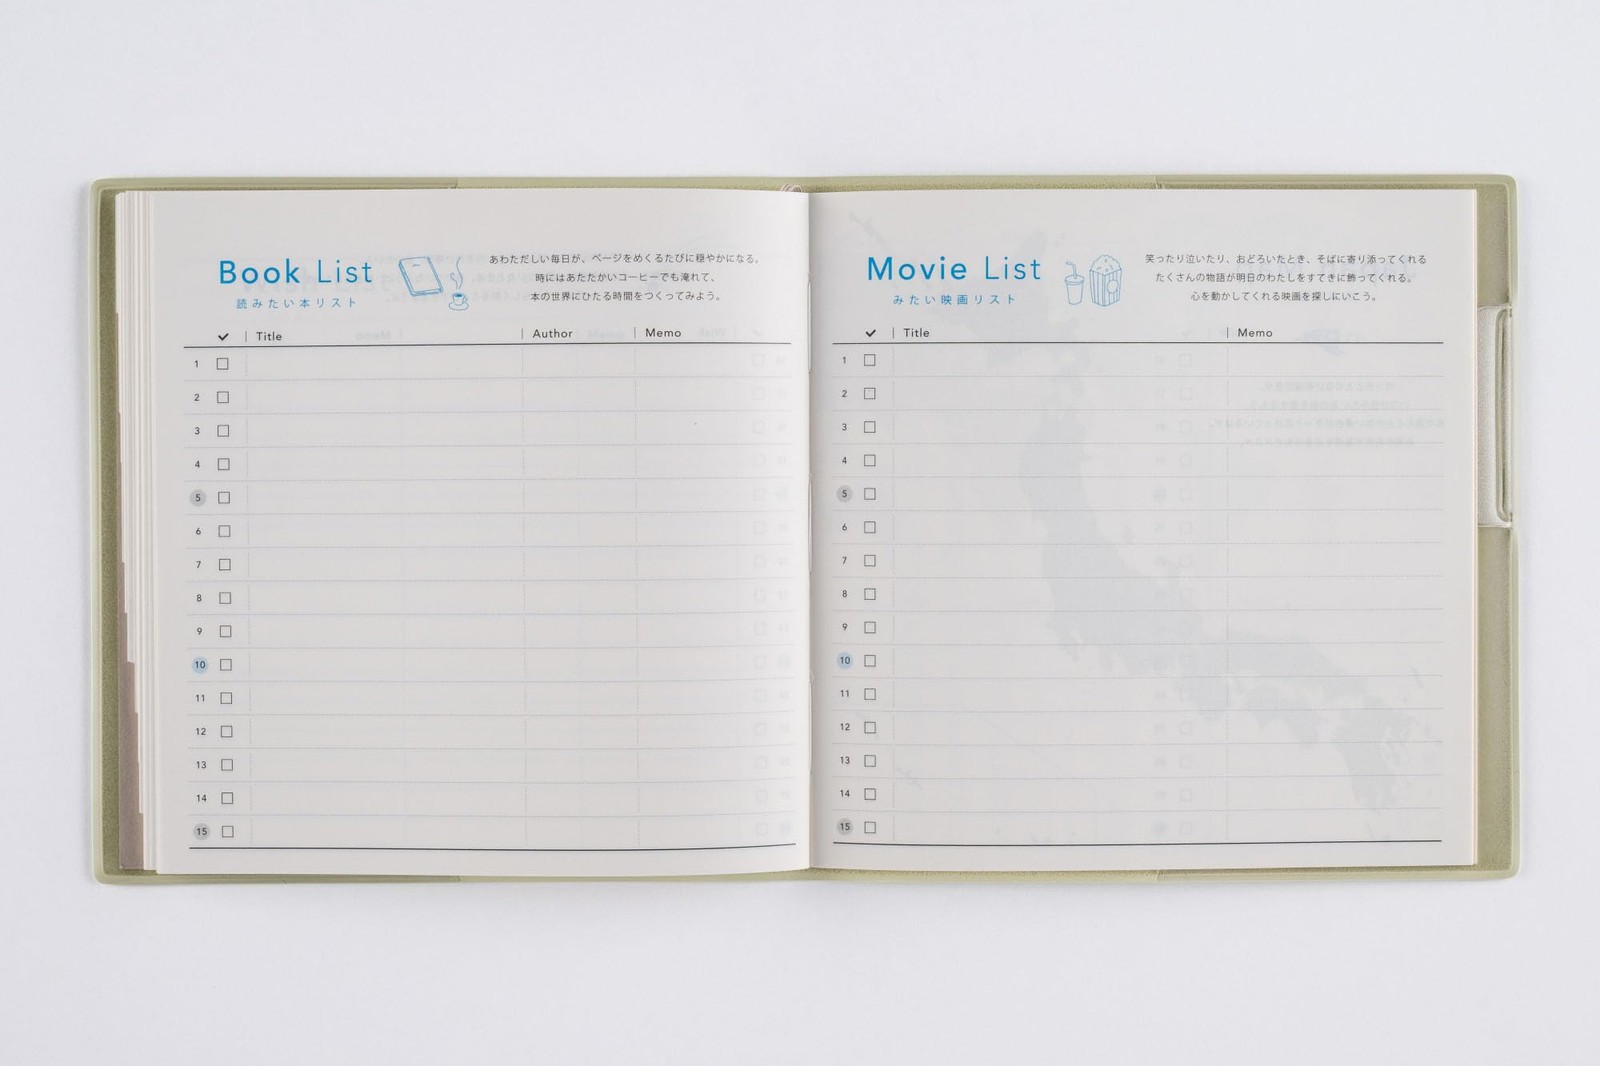 Book List
読みたい本リスト
あわただしい毎日が、ページをめくるたびに穏やかになる。
時にはあたたかいコーヒーでも淹れて、
本の世界にひたる時間をつくってみよう。
✓ Title Author Memo
1
2
3
4
5
6
7
8
9
10
11
12
13
14
15
Movie List
みたい映画リスト
笑ったり泣いたり、おどろいたとき、そばに寄り添ってくれる
たくさんの物語が明日のわたしをすてきに飾ってくれる。
心を動かしてくれる映画を探しにいこう。
✓ Title Memo
1
2
3
4
5
6
7
8
9
10
11
12
13
14
15